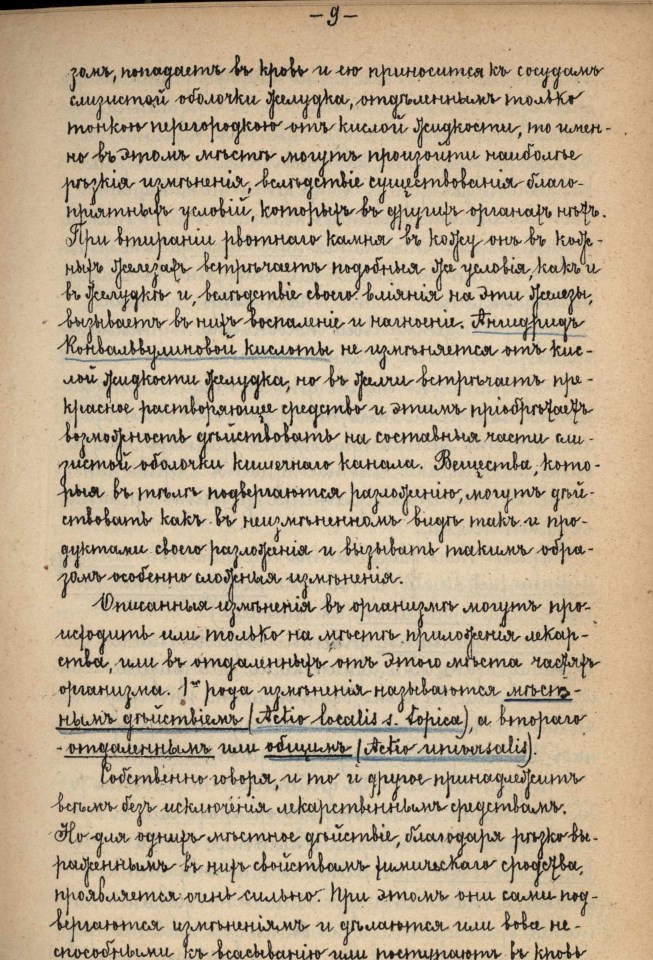 -9-
зомъ, попадаетъ въ кровь и ею приносится къ сосудамъ
слизистой оболочки желудка, отдѣленнымъ только
тонкою перегородкою отъ кислой жидкости, то имен-
но въ этомъ мѣстѣ могутъ произойти наиболѣе
рѣзкія измѣненія, вслѣдствіе существованія благо-
пріятныхъ условій, которыхъ въ другихъ органахъ нѣтъ.
При втираніи рвотнаго камня въ кожу онъ въ кож-
ныхъ железахъ встрѣчаетъ подобныя же условія, какъ и
въ желудкѣ и, вслѣдствіе своего вліянія на эти железы,
вызываетъ въ нихъ воспаленіе и нагноеніе. Ангидридъ
Конвальвулиновой кислоты не измѣняется отъ кис-
лой жидкости желудка, но въ желчи встрѣчаетъ пре-
красное растворяющее средство и этимъ пріобрѣтаетъ
возможность дѣйствовать на составныя части сли-
зистой оболочки кишечнаго канала. Вещества, кото-
рыя въ тѣлѣ подвергаются разложенію, могутъ дѣй-
ствовать какъ въ неизмѣненномъ видѣ такъ и про-
дуктами своего разложенія и вызывать такимъ обра-
зомъ особенно сложныя измѣненія.
Описанныя измѣненія въ организмѣ могутъ про-
исходить или только на мѣстѣ приложенія лекар-
ства, или въ отдаленныхъ отъ этого мѣста частяхъ
организма. 1го рода измѣненія называются мѣст-
нымъ дѣйствіемъ (Actio localis s. topica), а второго
- отдаленнымъ или общимъ (Actio universalis).
Собственно говоря, и то и другое принадлежитъ
всѣмъ безъ исключенія лекарственнымъ средствамъ.
Но для однихъ мѣстное дѣйствіе, благодаря рѣзко вы-
раженнымъ въ нихъ свойствамъ химическаго сродства,
проявляется очень сильно. При этомъ они сами под-
вергаются измѣненіямъ и дѣлаются или вовсе не-
способными къ всасыванію или поступаютъ въ кровь